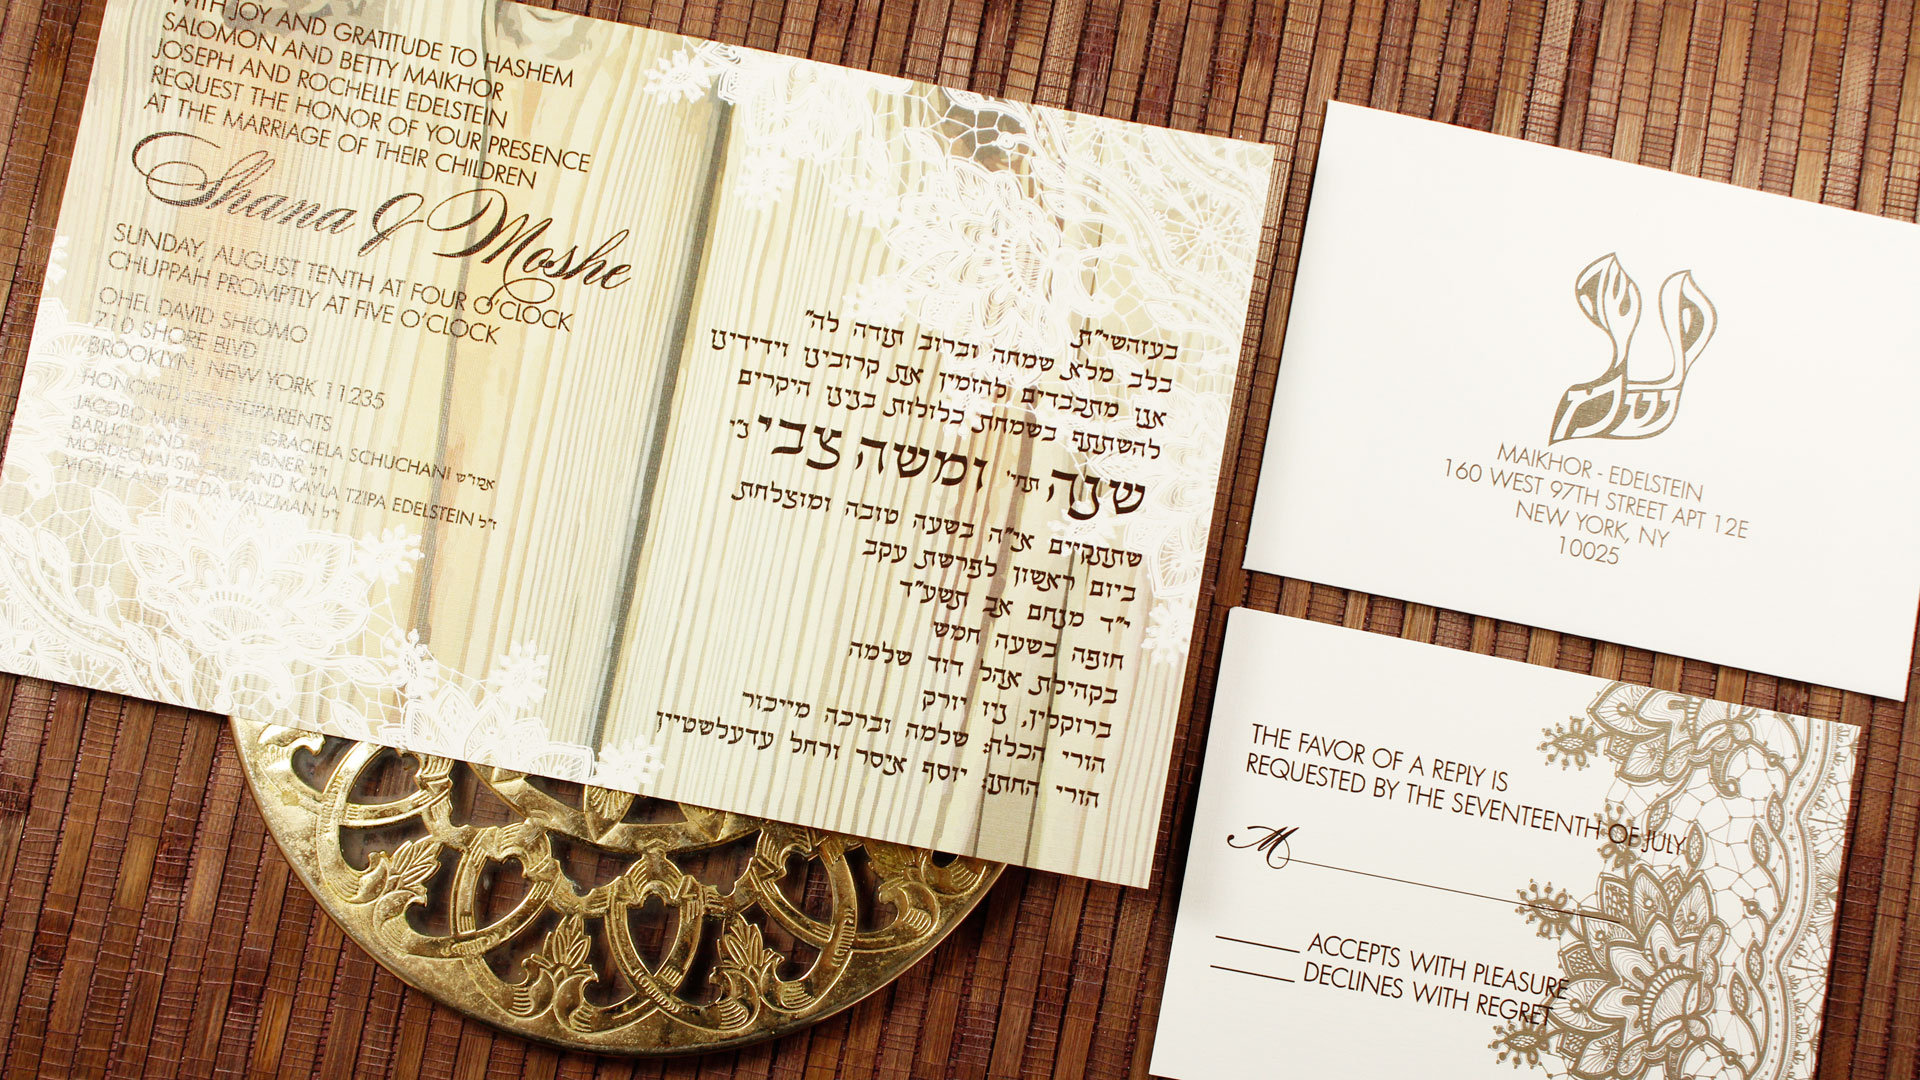 WITH JOY AND GRATITUDE TO HASHEM
SALOMON AND BETTY MAIKHOR
JOSEPH AND ROCHELLE EDELSTEIN
REQUEST THE HONOR OF YOUR PRESENCE
AT THE MARRIAGE OF THEIR CHILDREN
Shana & Moshe
SUNDAY, AUGUST TENTH AT FOUR O'CLOCK
CHUPPAH PROMPTLY AT FIVE O'CLOCK
OHEL DAVID SHLOMO
710 SHORE BLVD
BROOKLYN, NEW YORK 11235
HONORED GRANDPARENTS
JACOBO GRACIELA SCHUCHANI אמו"ש
BARUCH AND ABNER ז"ל
MORDECHAI SIMCHA AND KAYLA TZIPA EDELSTEIN ז"ל
MOSHE AND ZELDA WALZMAN ז"ל
בעזהשי"ת
בלב מלא שמחה וברוב תודה לה'
אנו מתכבדים להזמין את קרובינו וידידינו
להשתתף בשמחת כלולות בנינו היקרים
שנה תחי' ומשה צבי ני"
שתתקיים אי"ה בשעה טובה ומוצלחת
ביום ראשון לפרשת עקב
י"ד מנחם אב תשע"ד
חופה בשעה חמש
בקהילת אהל דוד שלמה
ברוקלין, ניו יורק
הורי הכלה: שלמה וברכה מייכור
הורי החתן: יוסף איסר ורחל עדעלשטיין
MAIKHOR - EDELSTEIN
160 WEST 97TH STREET APT 12E
NEW YORK, NY
10025
THE FAVOR OF A REPLY IS
REQUESTED BY THE SEVENTEENTH OF JULY
M
ACCEPTS WITH PLEASURE
DECLINES WITH REGRET